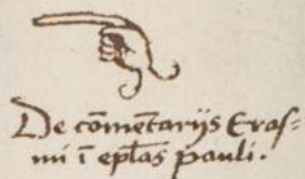 De cōmētarijs Eras=
mi ī epl̄as pauli.